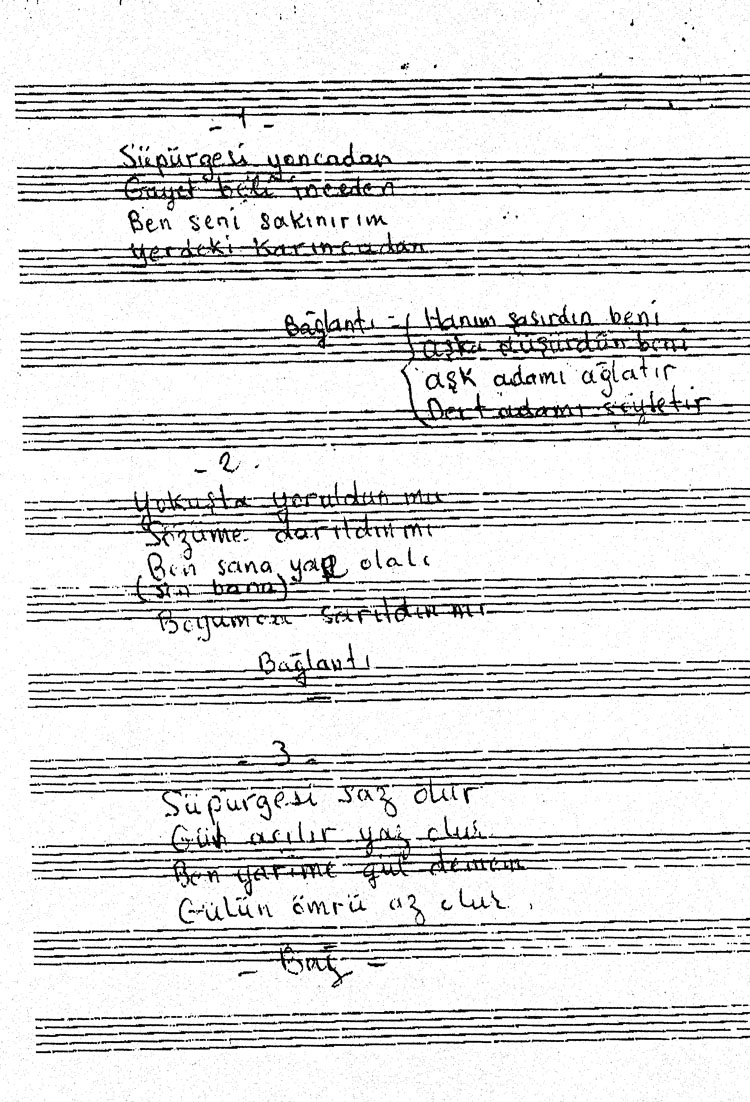 - 1 -
Süpürgesi yoncadan
Gayet beli inceden
Ben seni sakınırım
yerdeki Karıncadan
Bağlantı - Hanım şaşırdın beni
aşka düşürdün beni
aşk adamı ağlatır
Dert adamı söyletir
- 2 -
Yokuşta yoruldun mu
Sözüme darıldın mı
Ben sana yar olalı
(sen bana)
Boyumca sarıldın mı
Bağlantı
- 3 -
Süpürgesi saz olur
Gün açılır yaz olur
Ben yarime gül demem
Gülün ömrü az olur.
- Bağ -